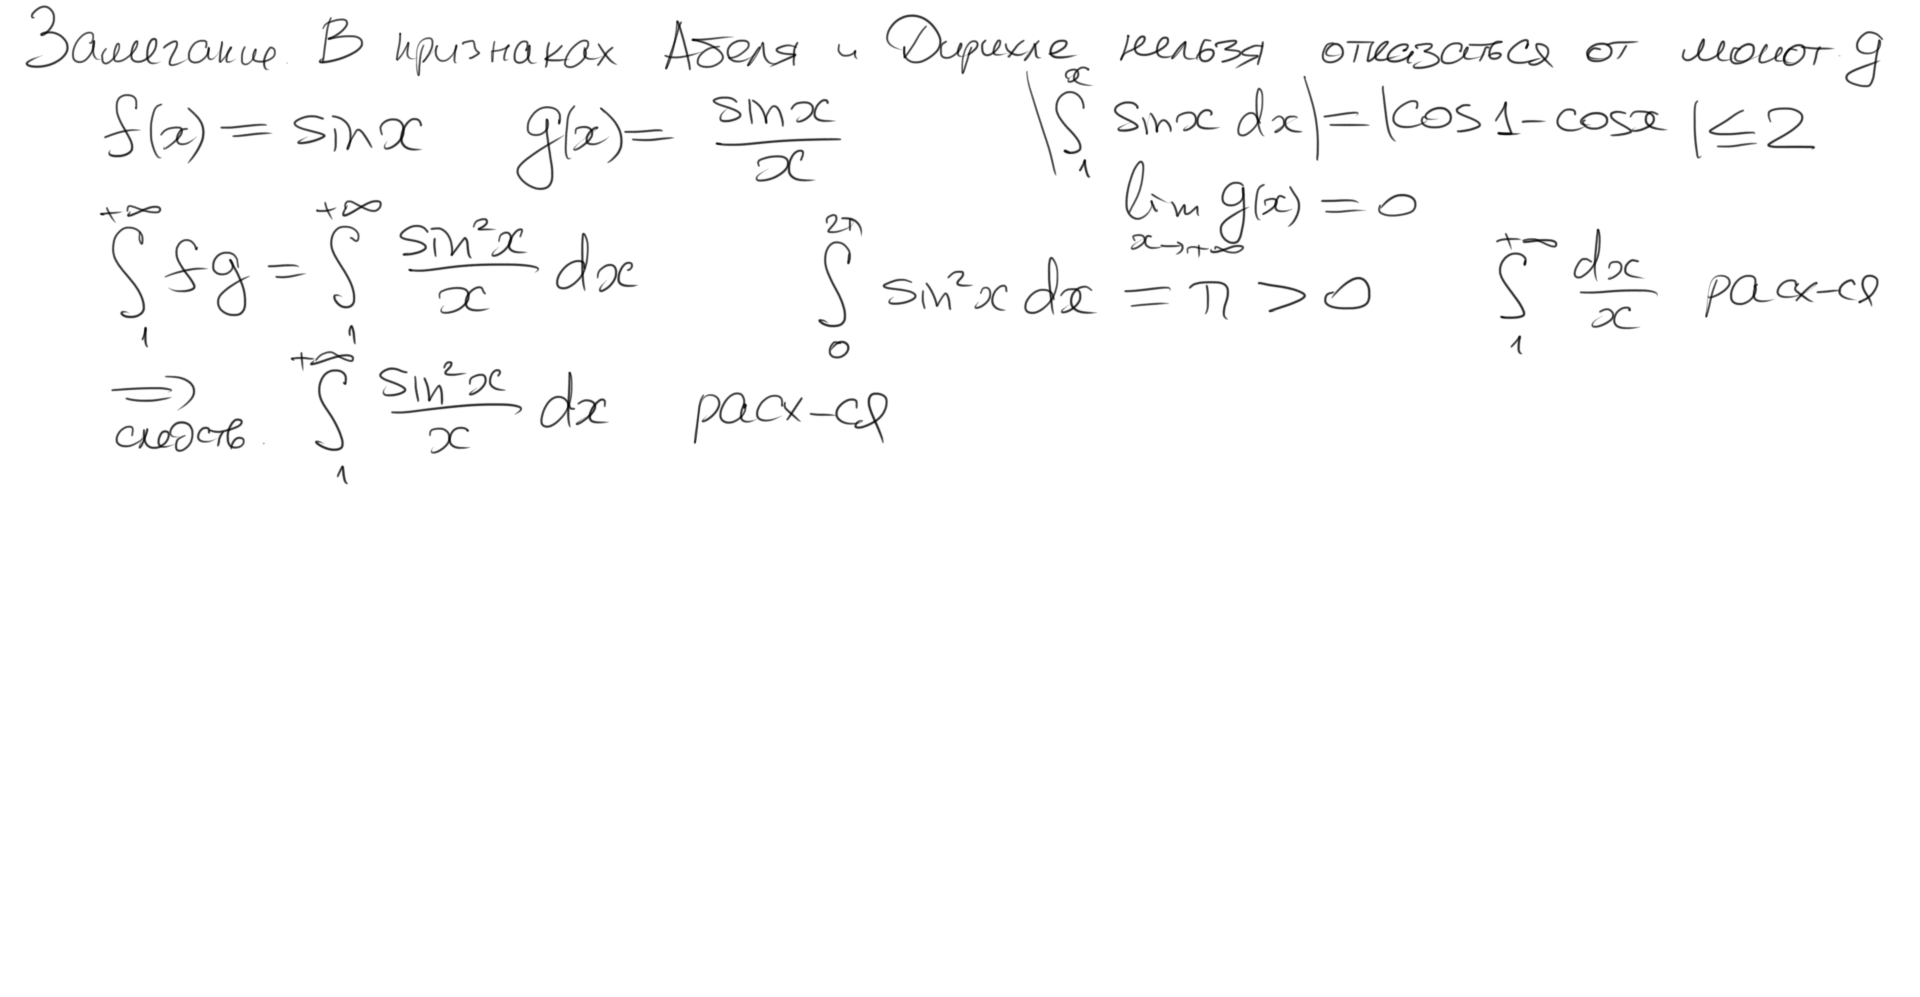 Замечание. В признаках Абеля и Дирихле нельзя отказаться от монот. g
f(x) = sin x g(x) = \frac{sin x}{x} |∫_1^x sin x dx| = |cos 1 - cos x| ≤ 2
lim_{x→+∞} g(x) = 0
∫_1^{+∞} fg = ∫_1^{+∞} \frac{sin^2 x}{x} dx ∫_0^{2π} sin^2 x dx = π > 0 ∫_1^{+∞} \frac{dx}{x} расх-ся
⇒ следств. ∫_1^{+∞} \frac{sin^2 x}{x} dx расх-ся